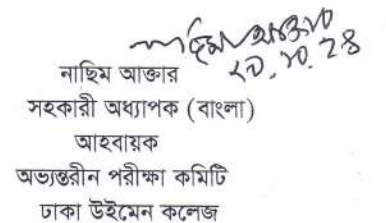 নাছিম আক্তার
২০.১০.২৪
নাছিম আক্তার
সহকারী অধ্যাপক (বাংলা)
আহবায়ক
অভ্যন্তরীন পরীক্ষা কমিটি
ঢাকা উইমেন কলেজ